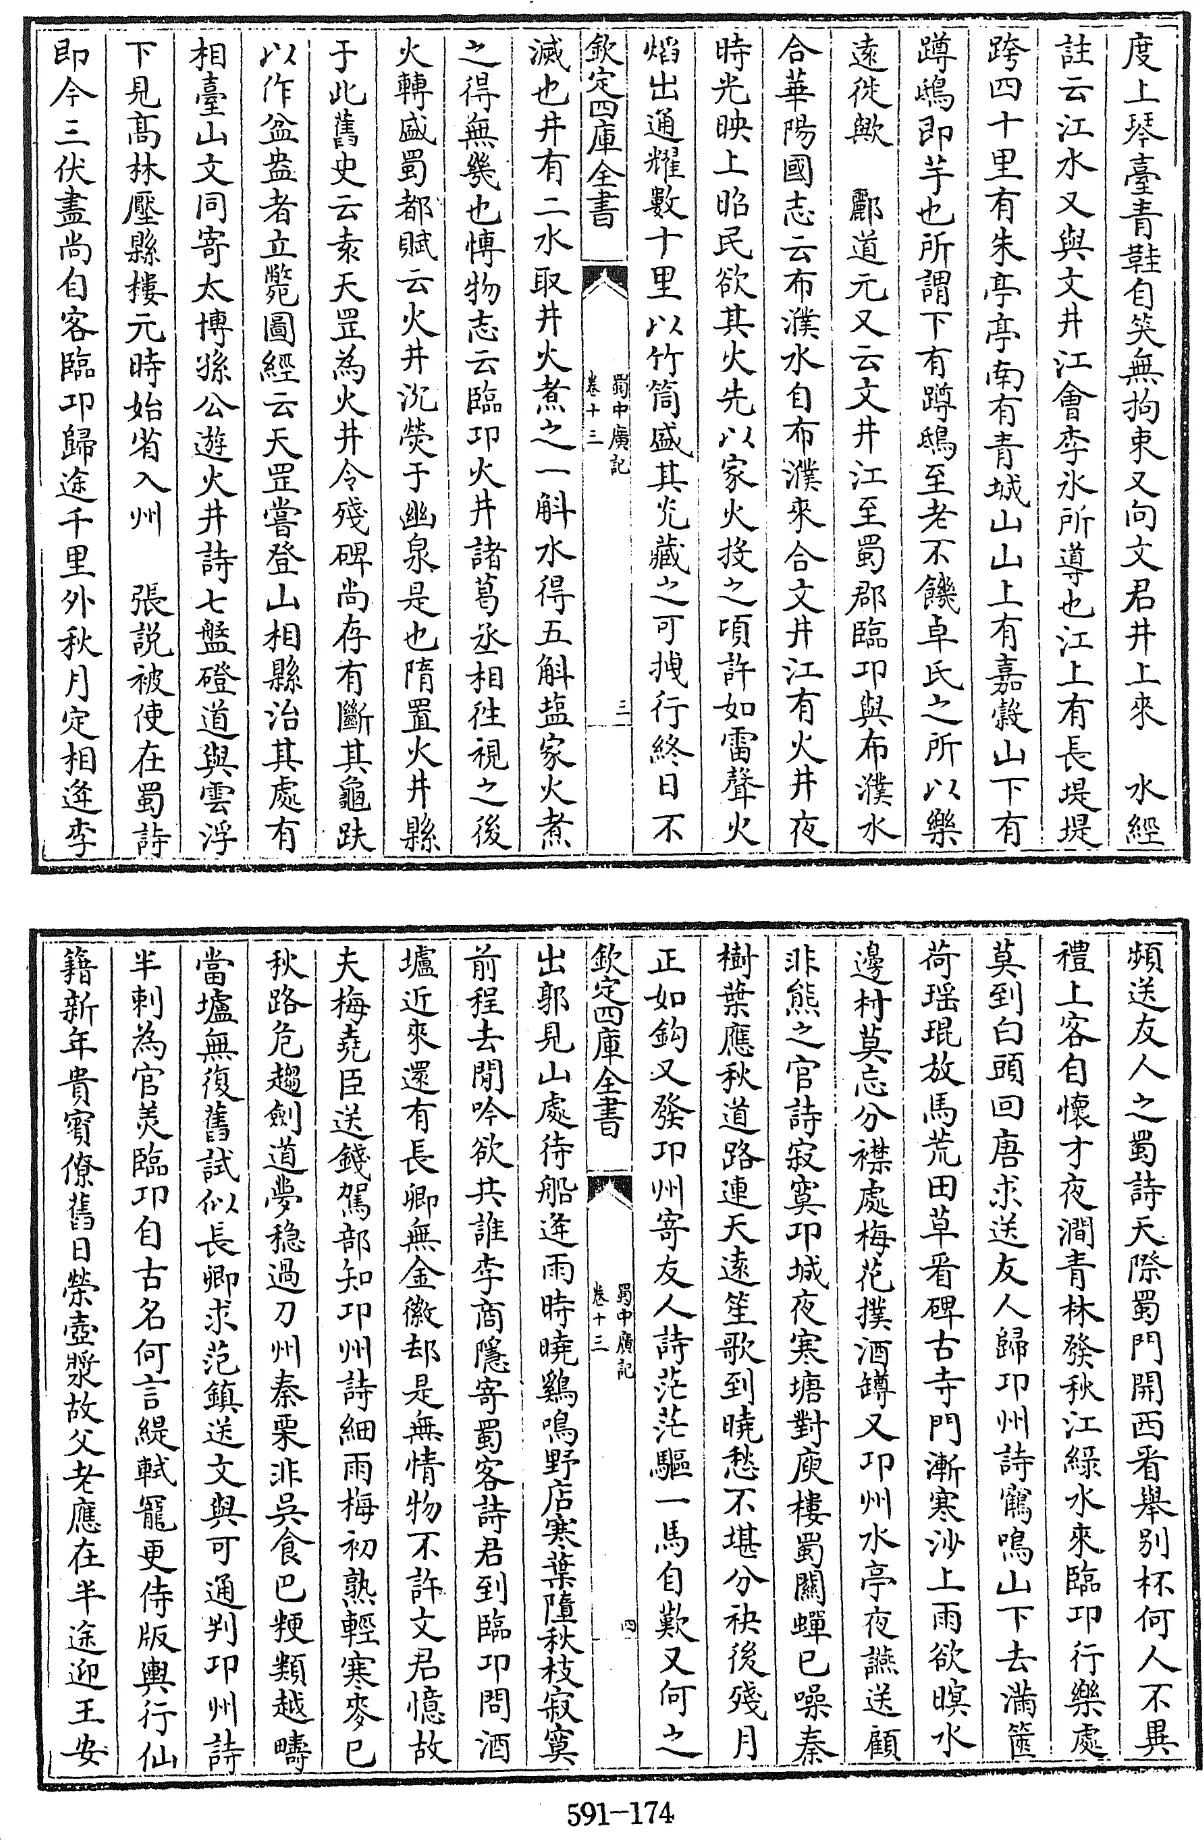 度上琴臺青鞋自笑無拘束又向文君井上來　水經
註云江水又與文井江會李氷所導也江上有長堤堤
跨四十里有朱亭亭南有青城山山上有嘉穀山下有
蹲鴟即芋也所謂下有蹲鴟至老不饑卓氏之所以樂
遠徙歟　酈道元又云文井江至蜀郡臨卭與布濮水
合華陽國志云布濮水自布濮來合文井江有火井夜
時光映上昭民欲其火先以家火投之頃許如雷聲火
焰出通耀數十里以竹筒盛其光藏之可拽行終日不
欽定四庫全書
蜀中廣記
卷十三
三
滅也井有二水取井火煮之一斛水得五斛塩家火煮
之得無幾也博物志云臨卭火井諸葛丞相徃視之後
火轉盛蜀都賦云火井沉熒于幽泉是也隋置火井縣
于此舊史云袁天罡為火井令殘碑尚存有斷其龜趺
以作盆盎者立斃圖經云天罡嘗登山相縣治其處有
相臺山文同寄太博孫公遊火井詩七盤磴道與雲浮
下見髙林壓縣樓元時始省入州　張説被使在蜀詩
即今三伏盡尚自客臨卭歸途千里外秋月定相逄李
頻送友人之蜀詩天際蜀門開西看舉别杯何人不異
禮上客自懷才夜澗青林發秋江緑水來臨卭行樂處
莫到白頭回唐求送友人歸卭州詩鶴鳴山下去滿篋
荷瑶琨放馬荒田草看碑古寺門漸寒沙上雨欲暝水
邊村莫忘分襟處梅花撲酒罇又卭州水亭夜讌送顧
非熊之官詩寂寞卭城夜寒塘對庾樓蜀關蟬已噪秦
樹葉應秋道路連天遠笙歌到曉愁不堪分袂後殘月
正如鈎又發卭州寄友人詩茫茫驅一馬自歎又何之
欽定四庫全書
蜀中廣記
卷十三
四
出郭見山處待船逄雨時曉鷄鳴野店寒葉墮秋枝寂寞
前程去閒吟欲共誰李商隱寄蜀客詩君到臨卭問酒
壚近來還有長卿無金徽却是無情物不許文君憶故
夫梅堯臣送錢駕部知卭州詩細雨梅初熟輕寒麥已
秋路危趨劍道夢穏過刀州秦栗非吳食巴粳類越疇
當壚無復舊試似長卿求范鎮送文與可通判卭州詩
半刺為官美臨卭自古名何言緹軾寵更侍版輿行仙
籍新年貴賓僚舊日榮壺漿故父老應在半途迎王安
591-174